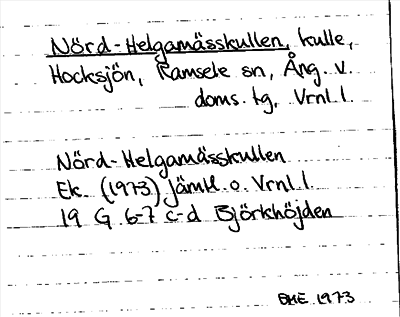 Nörd-Helgamässkullen, kulle,
Hocksjön, Ramsele sn, Ång. v.
doms. tg, Vrnl. l.
Nörd-Helgamässkullen
Ek. (1973) Jämtl. o. Vrnl. l.
19 G 6-7 c-d Björkhöjden
1973